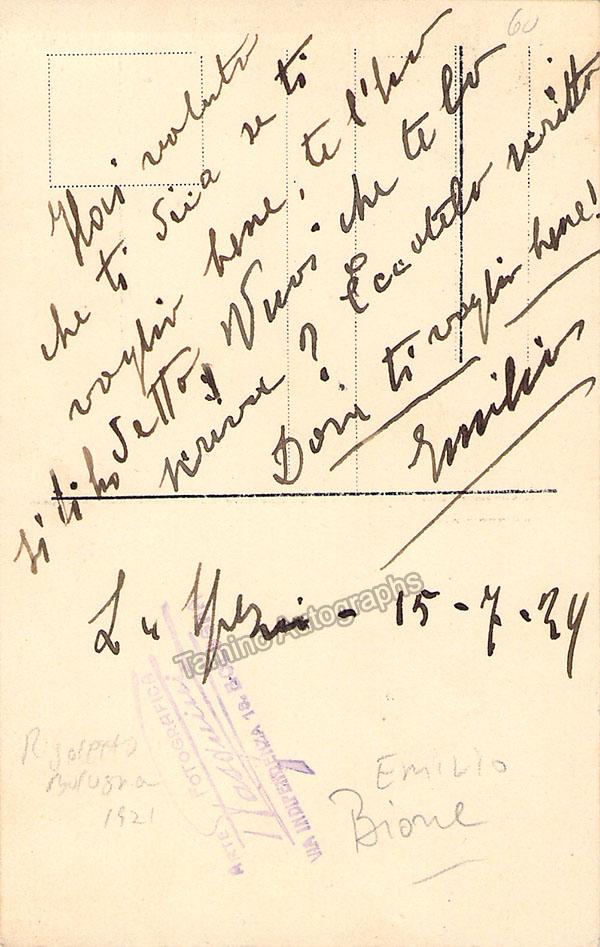 60
Hai voluto
che ti dica se ti
voglio bene, te l'ho
detto, Vuoi che te lo
scriva? Eccotelo scritto
Dori ti voglio bene!
si ti ho
Emilio
La Spezia - 15-7-24
Tamino Autographs
ARTE FOTOGRAFICA
VIA INDIPENDENZA 18, BO
Rigoletto
Bologna
1921
EMILIO
Bione